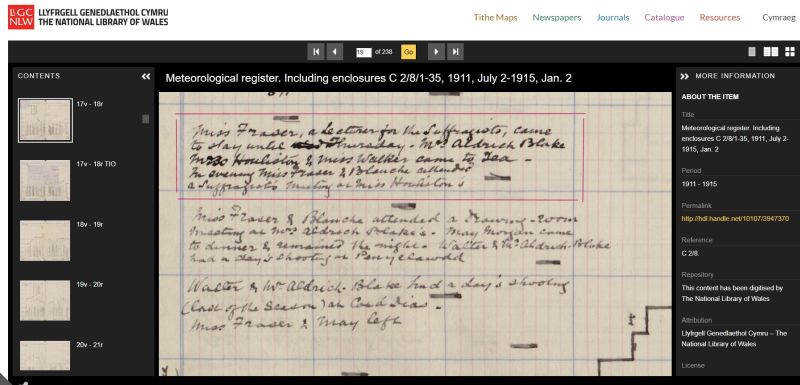 LLYFRGELL GENEDLAETHOL CYMRU
THE NATIONAL LIBRARY OF WALES
LlGC
NLW
Tithe Maps Newspapers Journals Catalogue Resources Cymraeg
19 of 238 Go
CONTENTS
17v - 18r
17v - 18r TIO
18v - 19r
19v - 20r
20v - 21r
Meteorological register. Including enclosures C 2/8/1-35, 1911, July 2-1915, Jan. 2
Miss Fraser, a Lecturer for the Suffragists, came
to stay until Thursday - Mrs Aldrich Blake
Miss Houliston & Miss Walker came to Tea -
In evening Miss Fraser & Blanche attended
a Suffragists meeting at Miss Houliston's
Miss Fraser & Blanche attended a Drawing-room
meeting at Mrs Aldrich Blake's - May Morgan came
to dinner & remained the night - Walter & Mr Aldrich-Blake
had a day's shooting on Penyclawdd
Walter & Mr Aldrich-Blake had a day's shooting
(last of the Season) on Coed Dias -
Miss Fraser & May left
MORE INFORMATION
ABOUT THE ITEM
Title
Meteorological register. Including
enclosures C 2/8/1-35, 1911, July 2-
1915, Jan. 2
Period
1911 - 1915
Permalink
http://hdl.handle.net/10107/3947370
Reference
C 2/8.
Repository
This content has been digitised by
The National Library of Wales
Attribution
Llyfrgell Genedlaethol Cymru – The
National Library of Wales
License